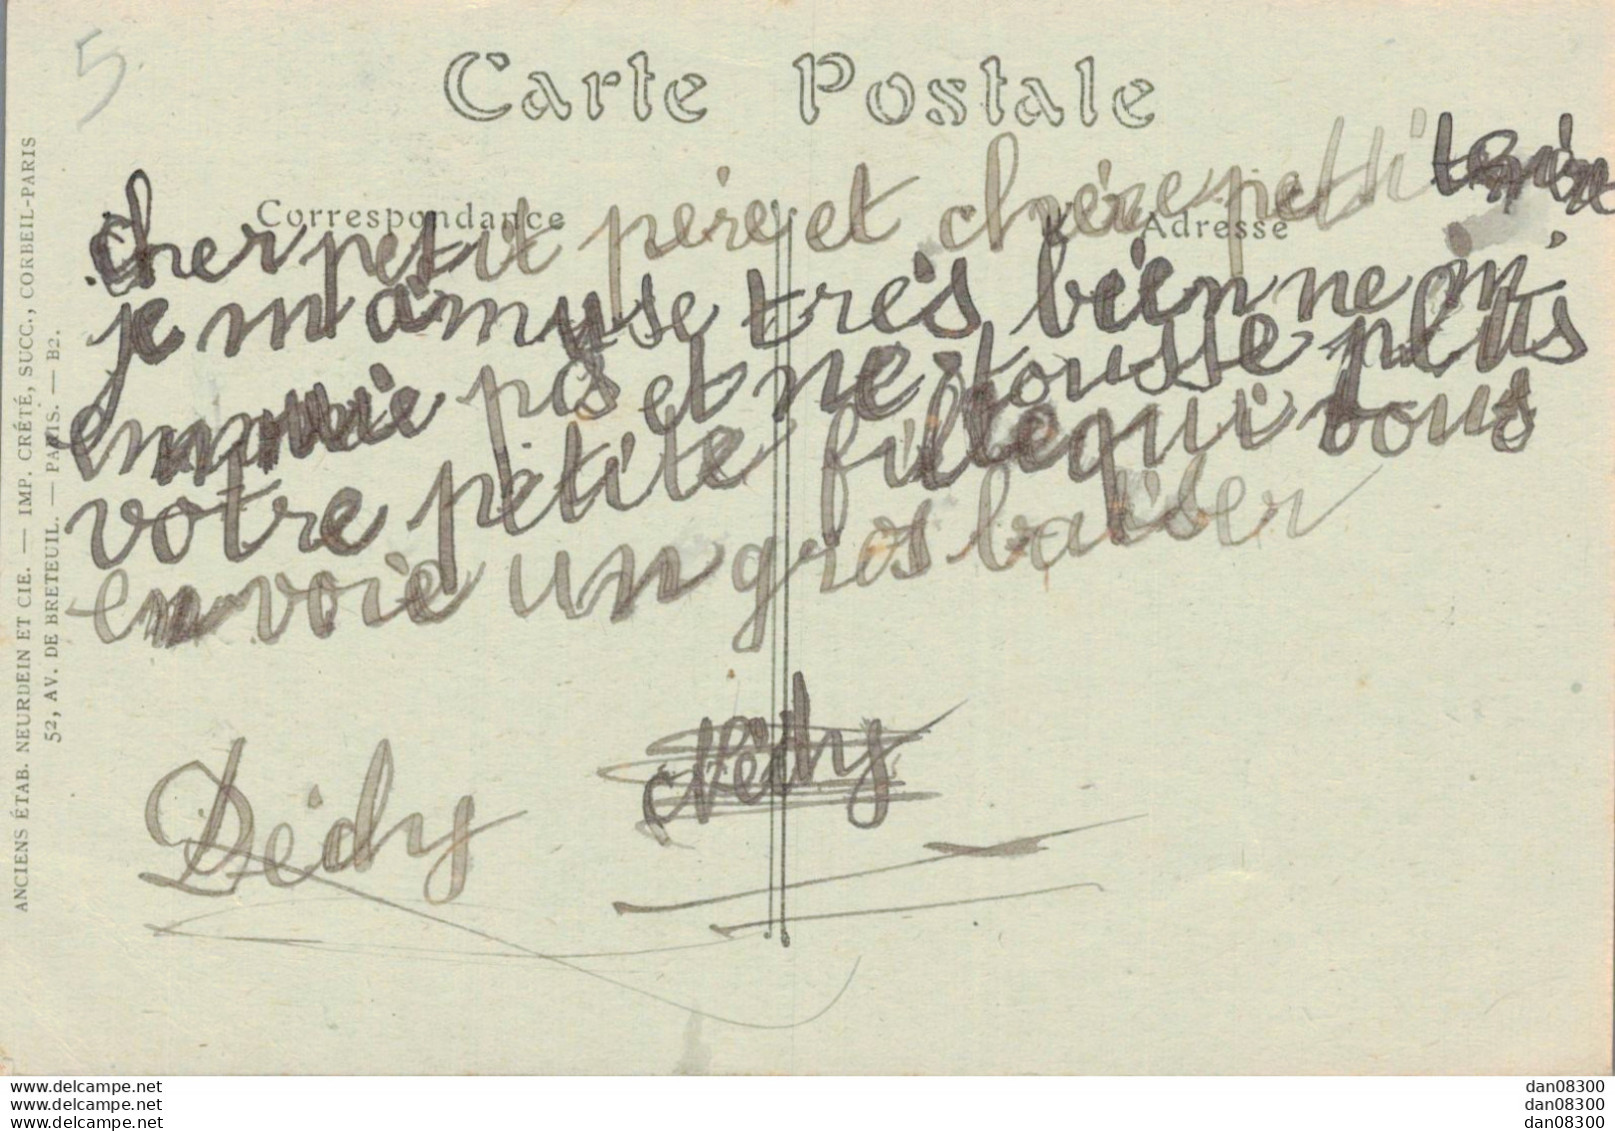 5
Carte Postale
Correspondance
Adresse
cher petit père et chère petti
je m'amuse très bien ne m'
ennuie pas et ne tousse plus
votre petite fille qui vous
envoie un gros baiser
Dédy Nédy
ANCIENS ÉTAB. NEURDEIN ET CIE. — IMP. CRÉTÉ, SUCC., CORBEIL-PARIS
52, AV. DE BRETEUIL. — PARIS. — B2.
www.delcampe.net dan08300
www.delcampe.net dan08300
www.delcampe.net dan08300